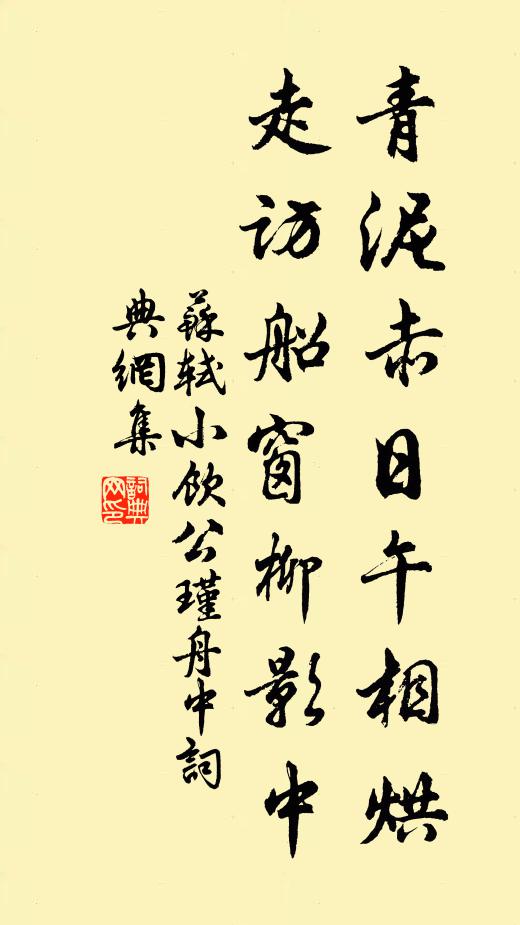 青泥赤日午相烘
走訪船窗柳影中
蘇軾小飲公瑾舟中詞
典網集
詞典网印